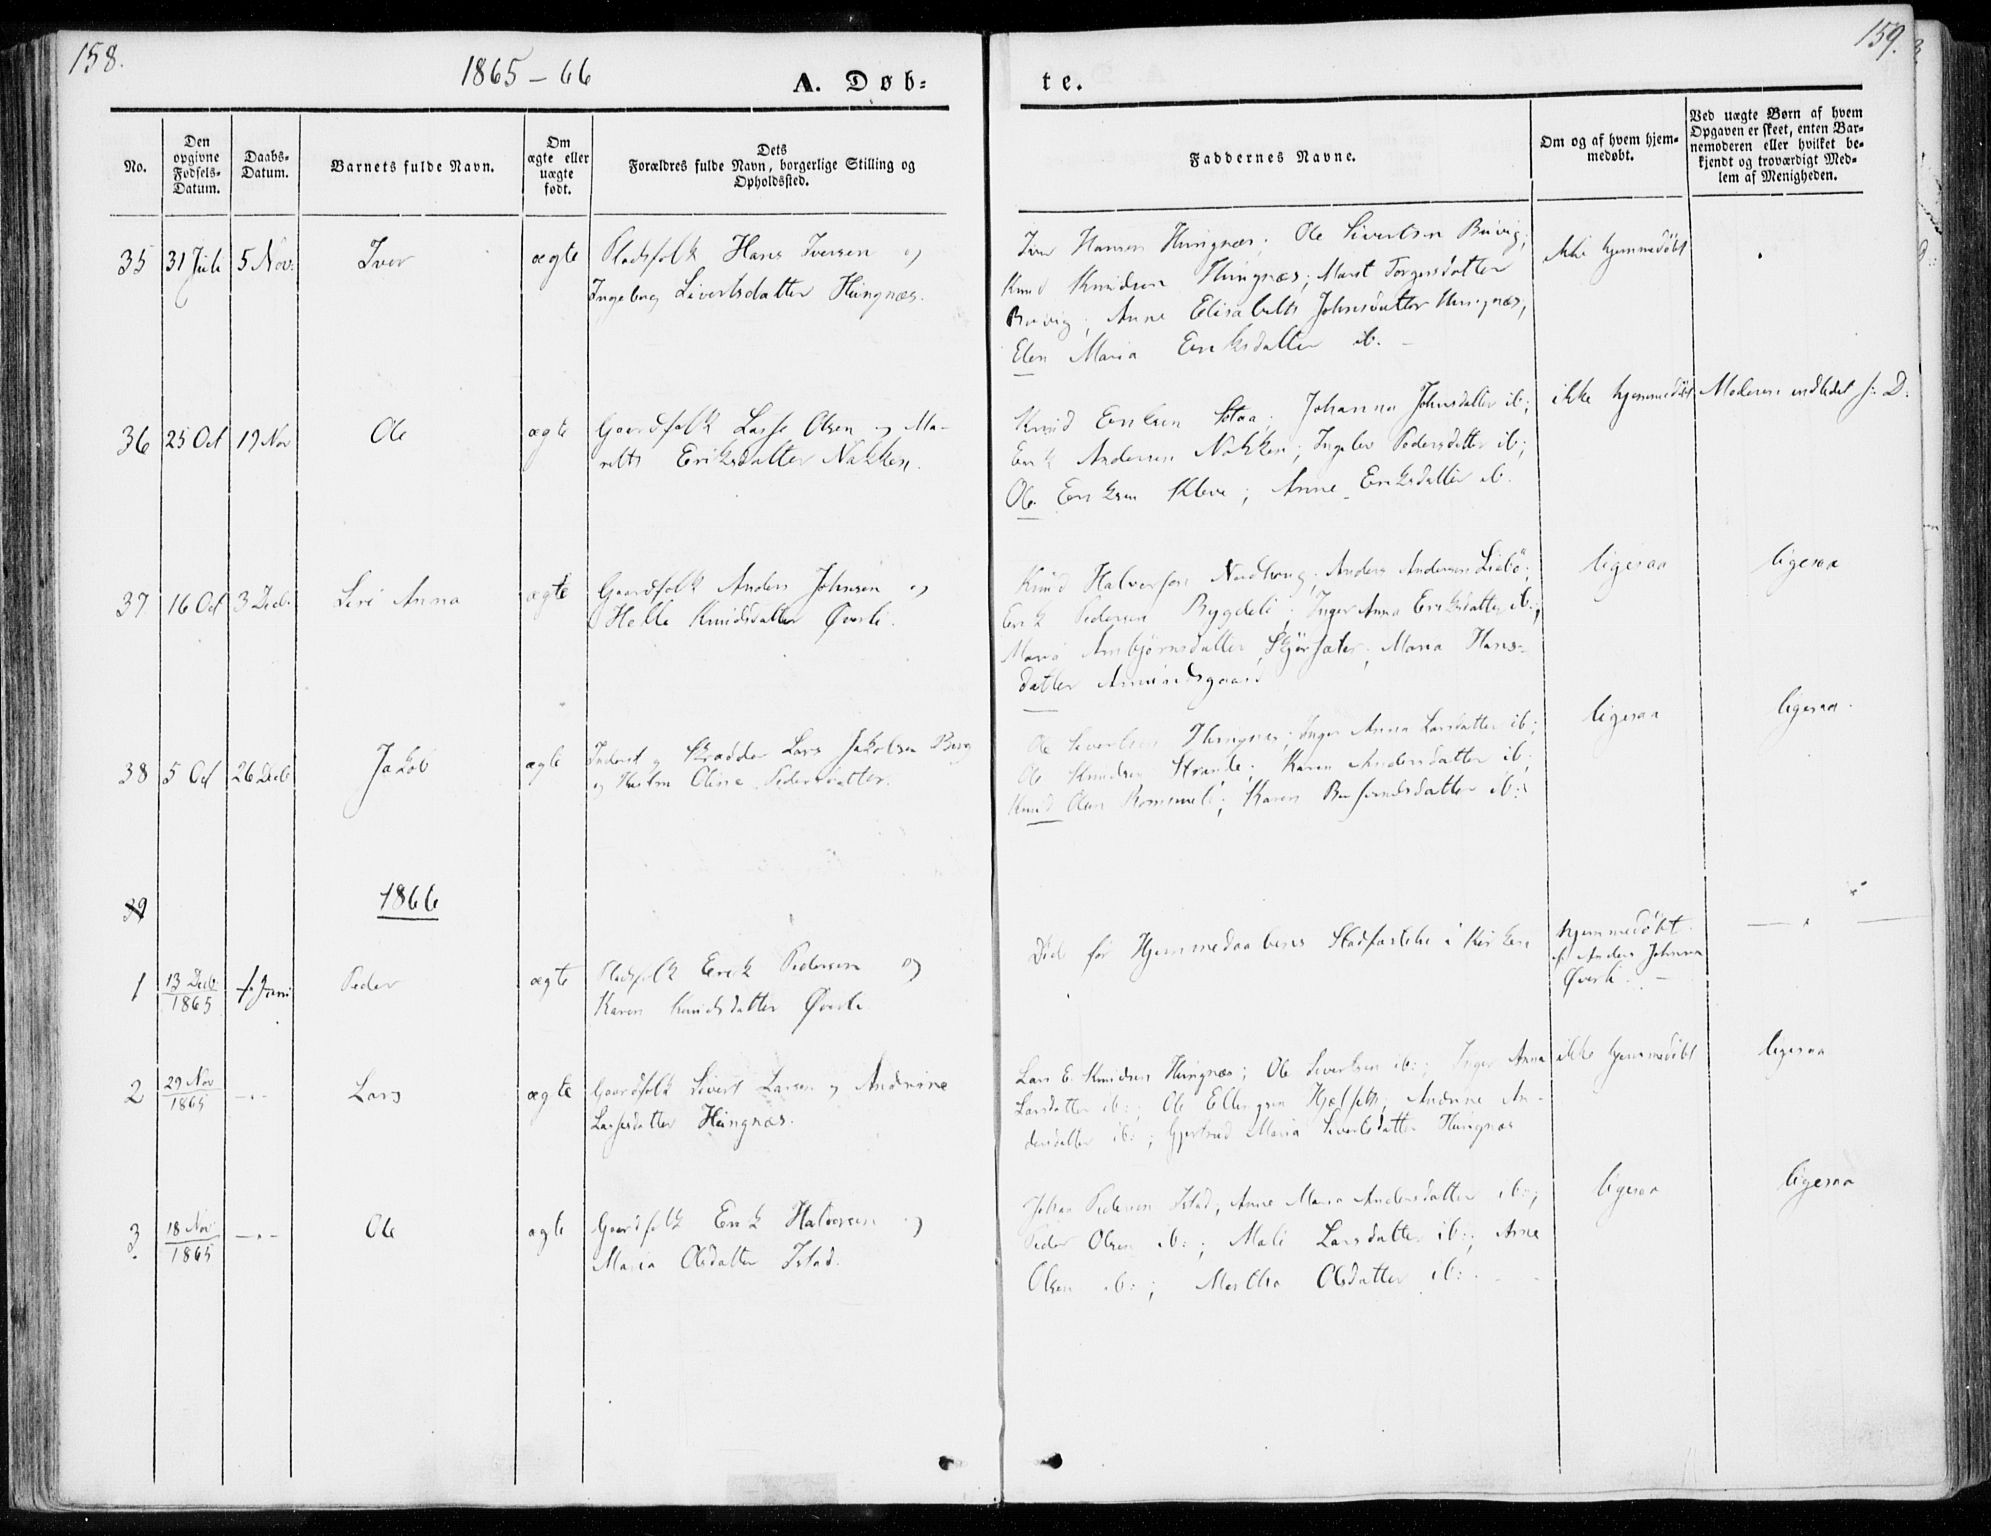 158.
1865-66
A. Døb-
te.
159.
No.
Den
opgivne
Fødsels-
Datum.
Daabs-
Datum.
Barnets fulde Navn.
Om
ægte eller
uægte
født.
Dets
Forældres fulde Navn, borgerlige Stilling og
Opholdssted.
Faddernes Navne.
Om og af hvem hjem-
medøbt.
Ved uægte Børn af hvem
Opgaven er skeet, enten Bar-
nemoderen eller hvilket be-
kjendt og troværdigt Med-
lem af Menigheden.
35 31 Juli 5 Nov: Iver ægte Pladsfolk Hans Iversen og
Ingeborg Sivertsdatter Hungnæs.
Iver Hansen Hungnæs; Ole Sivertsen Buvig;
Knud Knudsen Hungnæs; Marit Torgersdatter
Buvig; Anne Elisabeth Johnsdatter Hungnæs;
Elen Maria Eriksdatter ib. -
ikke hjemmedöbt
36 25 Oct 19 Nov Ole ægte Gaardfolk Lasse Olsen og Ma-
reth Eriksdatter Nakken.
Knud Eriksen Staa; Johanna Johnsdatter ib;
Erik Andersen Nakken; Ingeb. Pedersdatter ib;
Ole Eriksen Kleve; Anne Eriksdatter ib.
ikke hjemmedöbt
Moderen indledet s: D:
37 16 Oct 3 Decb: Seri Anna ægte Gaardfolk Anders Johnsen og
Helle Knudsdatter Øverli.
Knud Halvorsen; Anders Andersen Liabö;
Erik Pedersen Bygdeli; Inger Anna Eriksdatter ib.;
Maria Arnbjørnsdatter; Maria Hans-
datter Amundsgaard
ligesaa
ligesaa
38 5 Oct 26 Decb Jakob ægte Inderst og Skrædder Lars Jakobsen Berg
og Hustru Oline Pedersdatter.
Ole Sivertsen Hungnæs; Inger Anna Larsdatter ib;
Ole Knudsen Strande; Karen Andersdatter ib;
Knud Olsen; Karen datter ib:
ligesaa
ligesaa.
39
1866
1 13 Decb: 1865 Peder ægte Pladsfolk Erik Pedersen og
Karen Knudsdatter Øverli
Död før Hjemmedaabens Stadfæstelse i Kirken
hjemmedöbt
af Anders Johnsen
Øverli. -
2 29 Nov 1865 -"- Lars ægte Gaardfolk Sivert Larsen og Andrine
Lassesdatter Hungnæs.
Lars E. Knudsen Hungnæs; Ole Sivertsen ib:; Inger Anna
Larsdatter ib:; Ole Ellingsen Hjelseth; Andrine An-
dersdatter ib:; Gjertrud Maria Sivertsdatter Hungnæs
ikke hjemmedöbt
ligesaa
3. 18 Nov 1865 -"- Ole ægte Gaardfolk Erik Halvorsen og
Maria Olsdatter Istad.
Johan Pedersen Istad; Anne Maria Andersdatter ib:;
Peder Olsen ib:; Mali Larsdatter ib:; Arne
Olsen ib:; Martha Olsdatter ib:.
ligesaa
ligesaa